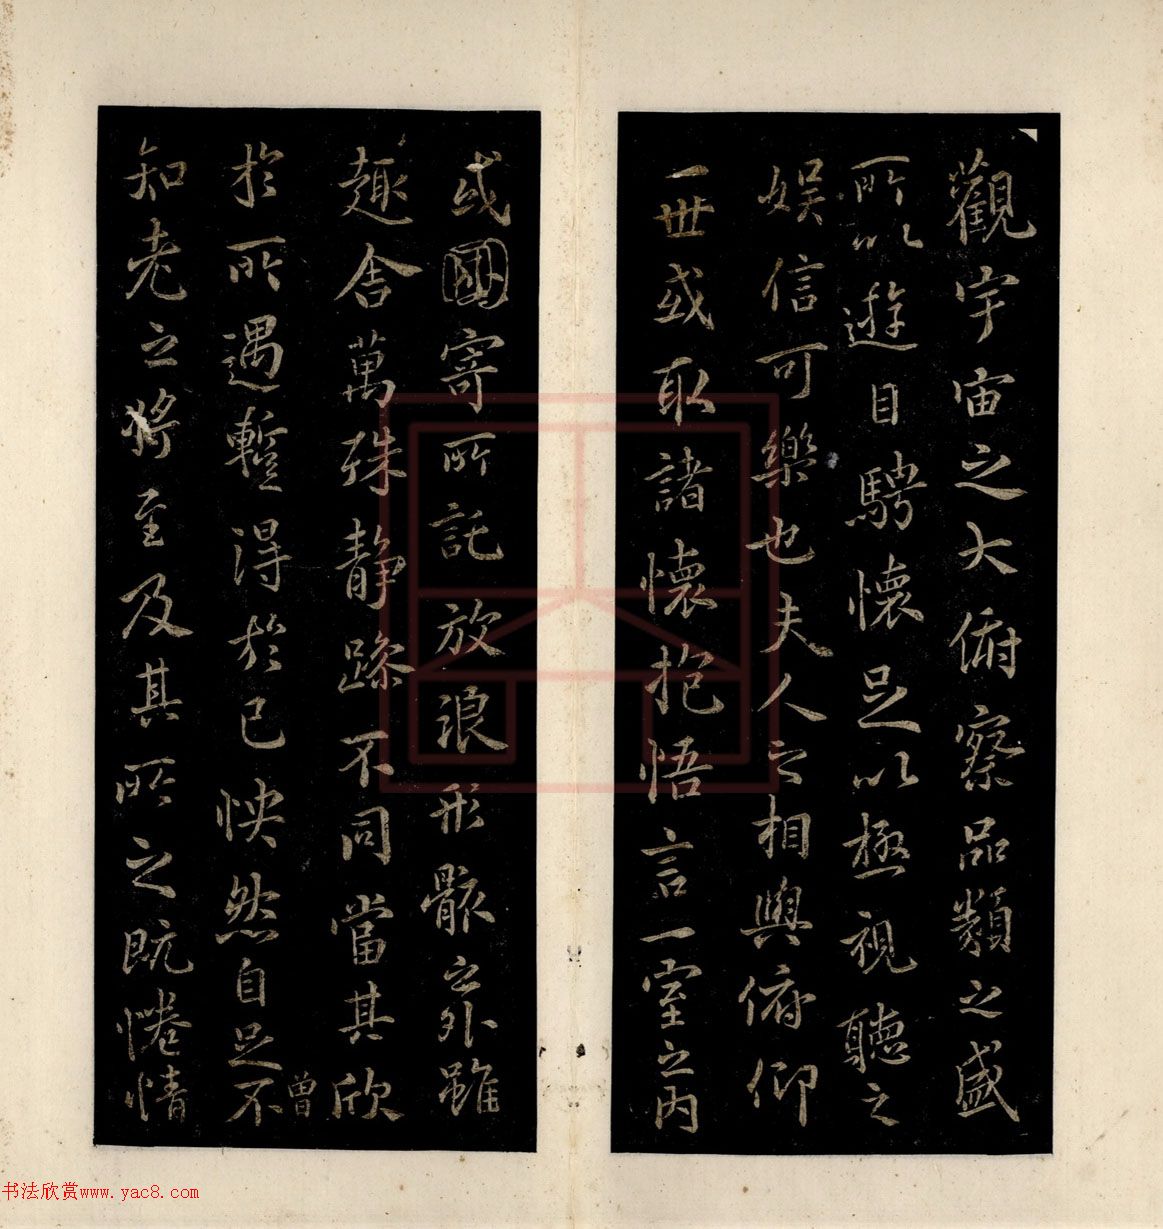 觀宇宙之大俯察品類之盛
所以遊目騁懷足以極視聽之
娱信可樂也夫人之相與俯仰
一世或取諸懷抱悟言一室之內
或因寄所託放浪形骸之外雖
趣舍萬殊静躁不同當其欣
於所遇暫得於己怏然自足不
曾
知老之将至及其所之既惓情
书法欣赏www.yac8.com